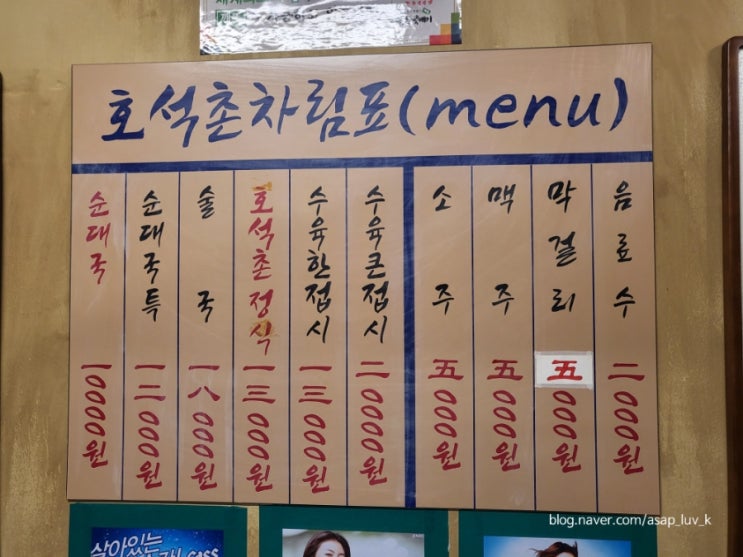 호석촌차림표(menu)
순대국 一0000원
순대국특 一二000원
술국 一八000원
호석촌정식 一三000원
수육한접시 一三000원
수육큰접시 二0000원
소주 五000원
맥주 五000원
막걸리 五000원
음료수 二000원
살아있는
blog.naver.com/asap_luv_k